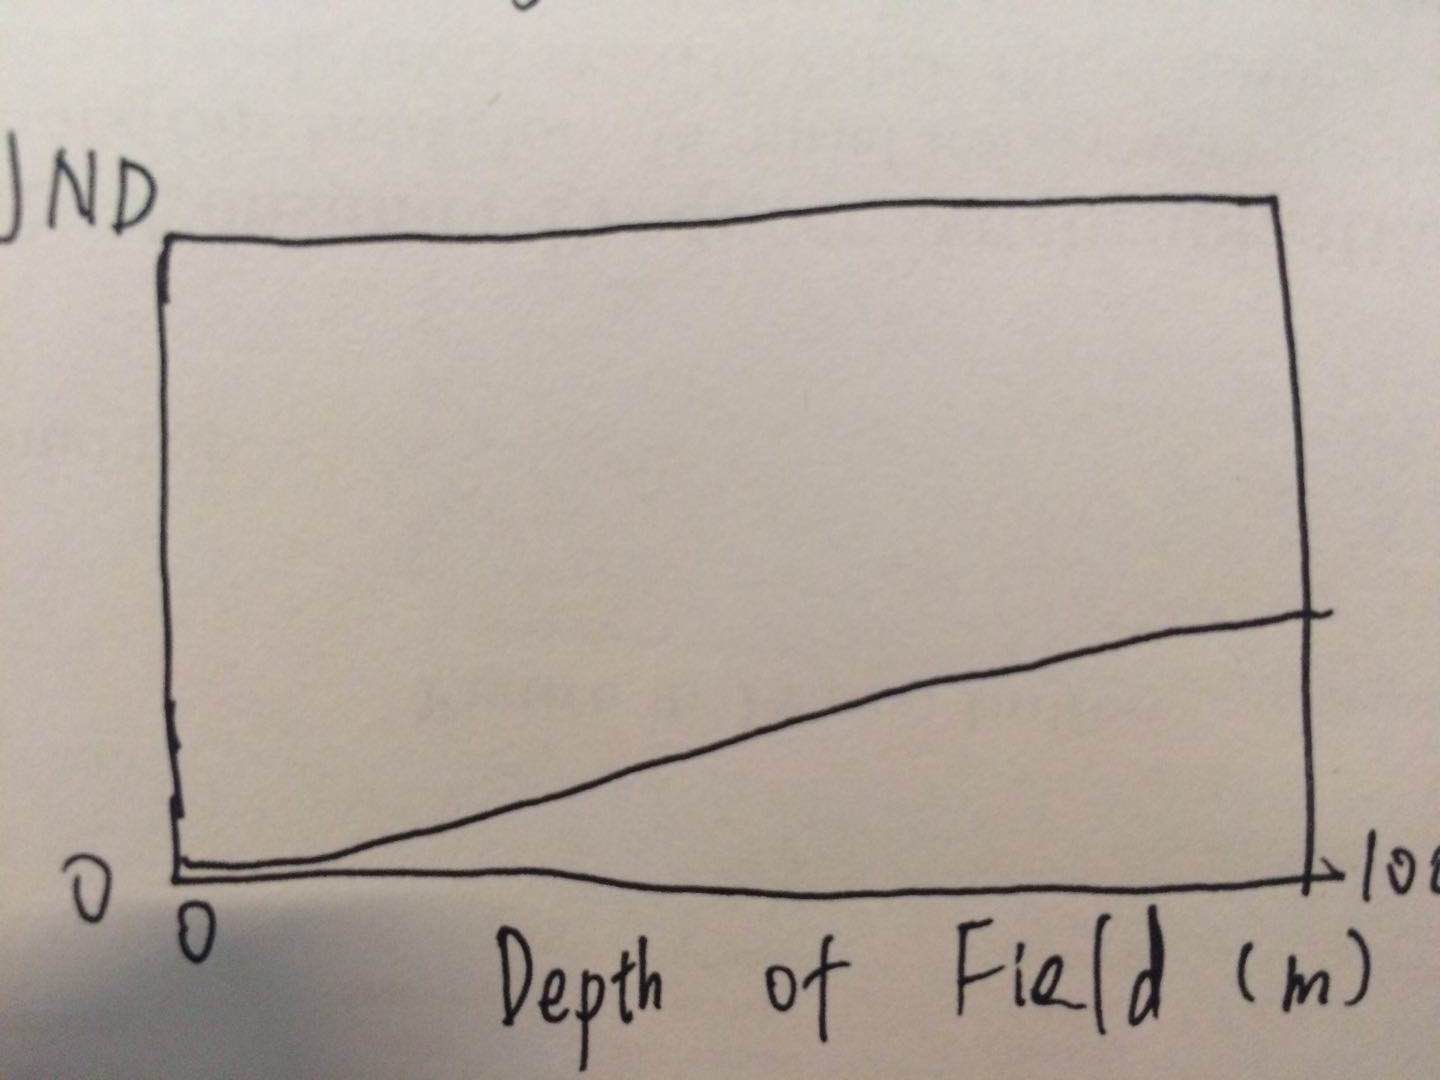 JND
0
0
Depth of Field (m)